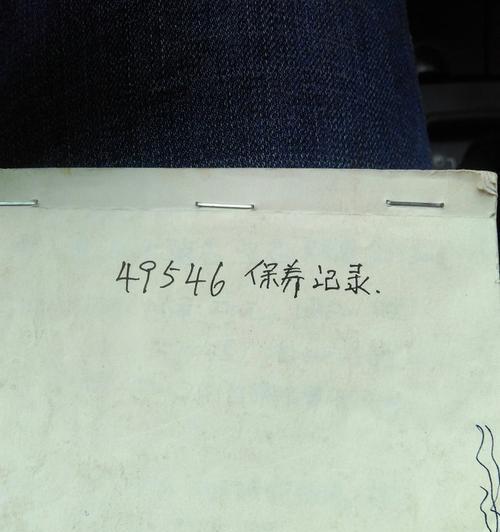 49546 保养记录.